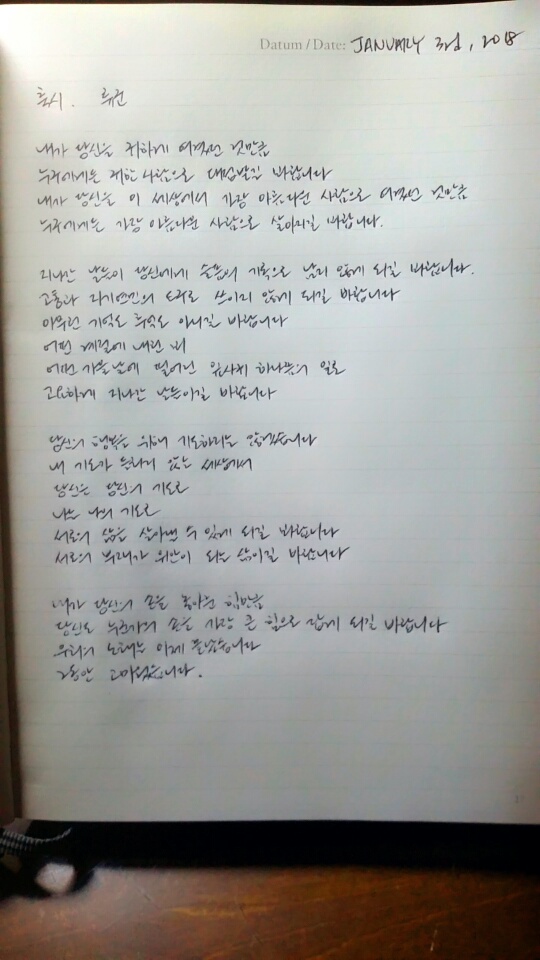 Datum / Date: JANUARY 3rd, 2018
축시. 류근
내가 당신을 귀하게 여겼던 것만큼
누구에게든 귀한 사람으로 대접받길 바랍니다
내가 당신을 이 세상에서 가장 아름다운 사람으로 여겼던 것만큼
누구에게든 가장 아름다운 사람으로 살아지길 바랍니다.
지나간 날들이 당신에게 슬픔의 기록으로 남지 않게 되길 바랍니다.
고통과 자기연민의 도구로 쓰이지 않게 되길 바랍니다
아무런 기억도 추억도 아니길 바랍니다
어떤 계절에 내린 비
어떤 가을날에 떨어진 잎사귀 하나쯤의 일로
고요하게 지나간 날들이길 바랍니다
당신의 행복을 위해 기도하지는 않겠습니다
내 기도가 들리지 않는 세상에서
당신은 당신의 기도로
나는 나의 기도로
서로의 삶을 살아낼 수 있게 되길 바랍니다
서로의 부재가 위안이 되는 삶이길 바랍니다
내가 당신의 손을 놓아준 힘만큼
당신도 누군가의 손을 가장 큰 힘으로 잡게 되길 바랍니다
우리의 노래는 이제 끝났습니다
그동안 고마웠습니다.